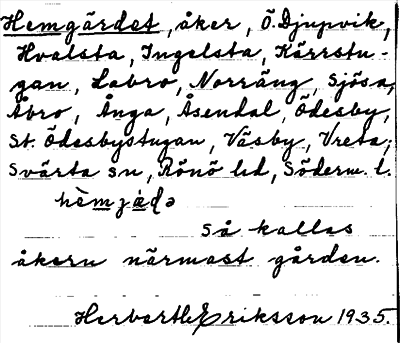 Hemgärdet, åker, Ö. Djupvik,
Hvalsta, Ingelsta, Kärrstu-
gan, Labro, Norräng, Sjösa,
Åbro, Ånga, Åsendal, Ödesby,
St. Ödesbystugan, Väsby, Vreta,
Svärta sn, Rönö hd, Söderm. l.
hèmjàḍə
Så kallas
åkern närmast gården.
Herbarth Eriksson 1935.